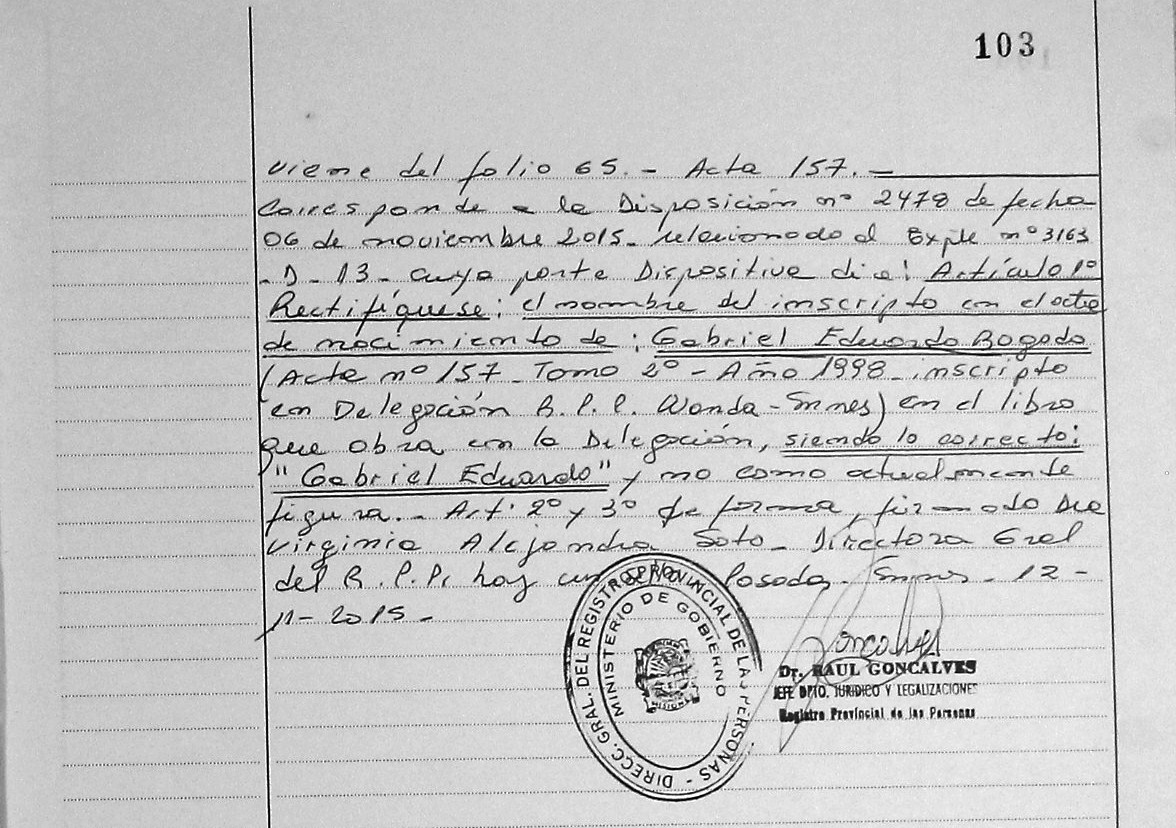 103
viene del folio 65. - Acta 157. -
Corresponde a la Disposición nº 2478 de fecha
06 de noviembre 2015 - relacionado al Expte nº 3163
- D - 13 - cuya parte Dispositiva dice: Artículo 1º
Rectifíquese: el nombre del inscripto en el acta
de nacimiento de: Gabriel Eduardo Bogado
(Acta nº 157 - Tomo 2º - Año 1998 - inscripto
en Delegación R.P.P. Wanda - Mnes) en el libro
que obra en la Delegación, siendo lo correcto:
"Gabriel Eduardo" y no como actualmente
figura. - Art. 2º y 3º de forma, firmado Dra
Virginia Alejandra Soto - Directora Gral
del R.P.P. hay un sello Posadas - Mnes - 12 -
11 - 2015 -
DIRECC. GRAL. DEL REGISTRO PROVINCIAL DE LAS PERSONAS -
MINISTERIO DE GOBIERNO
MISIONES
Goncalves
Dr. RAUL GONCALVES
JEFE DPTO. JURIDICO Y LEGALIZACIONES
Registro Provincial de las Personas